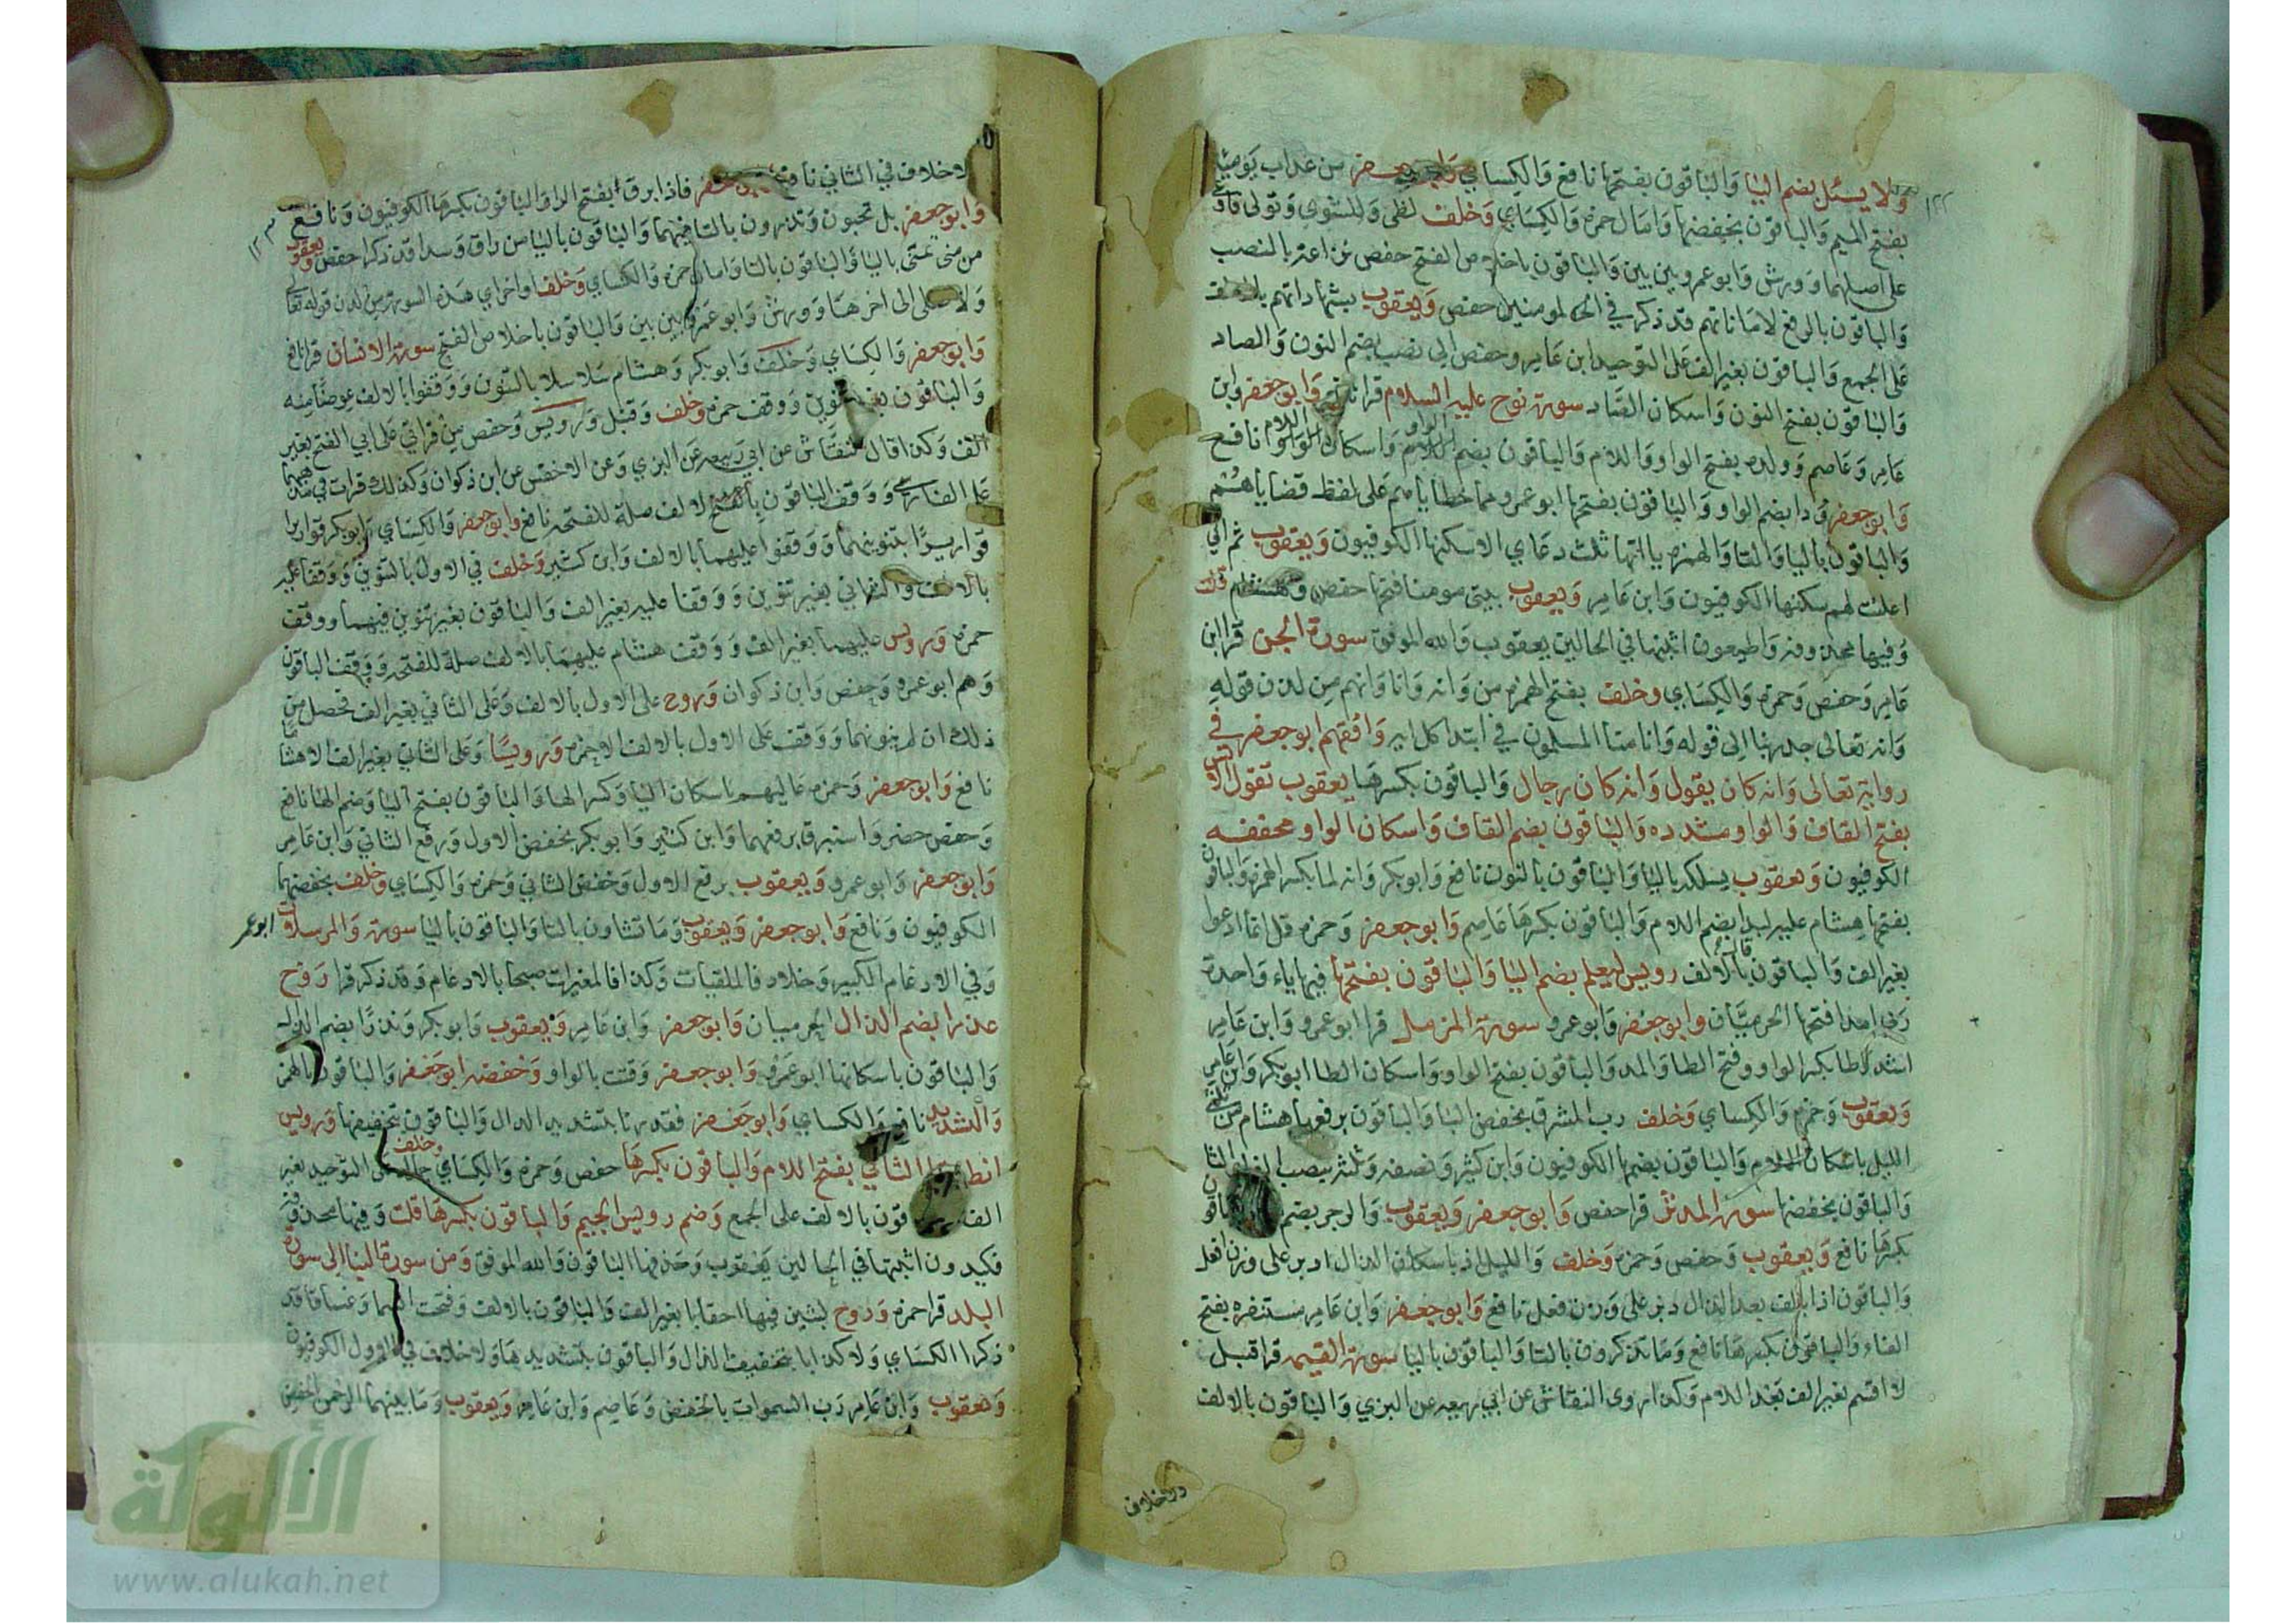 ولا يسئل بضم اليا والباقون بفتحها نافع والكسائي وابو جعفر من عذاب يومئذ
بفتح الميم والباقون بخفضها وامال حمزه والكسائي وخلف لظى وللشوى وتولى فاوعى
على اصلهما وورش وابو عمرو بين بين والباقون باخلاص الفتح حفص نزاعة بالنصب
والباقون بالرفع لاماناتهم قد ذكر في المومنين حفص ويعقوب بشهاداتهم بالالف
على الجمع والباقون بغير الف على التوحيد ابن عامر وحفص الى نصب بضم النون والصاد
والباقون بفتح النون واسكان الصاد سورة نوح عليه السلام قرا نافع وابو جعفر وابن
عامر وعاصم وولده بفتح الواو واللام والباقون بضم الواو واسكان اللام نافع
وابو جعفر ودا بضم الواو والباقون بفتحها ابو عمرو مما خطاياهم على لفظ قضاياهم
والباقون باليا والتا والهمزه ياآتها ثلث دعاي الا سكنها الكوفيون ويعقوب ثم اني
اعلنت لهم سكنها الكوفيون وابن عامر ويعقوب بيتي مومنا فتحها حفص وهشام قلت
وفيها محذوفه واطيعون اثبتها في الحالين يعقوب والله الموفق سورة الجن قرا ابن
عامر وحفص وحمزه والكسائي وخلف بفتح الهمزه من وانه وانا وانهم من لدن قوله
وانه تعالى جد ربنا الى قوله وانا منا المسلمون في ابتدا كل اية وافقهم ابو جعفر في
رواية تعالى وانه كان يقول وانه كان رجال والباقون بكسرها يعقوب تقول الانس
بفتح القاف والواو مشدده والباقون بضم القاف واسكان الواو مخففه
الكوفيون ويعقوب يسلكه باليا والباقون بالنون نافع وابو بكر وانه لما بكسر الهمزه والباقون
بفتحها هشام عليه لبدا بضم اللام والباقون بكسرها عاصم وابو جعفر وحمزه قل انما ادعوا
بغير الف والباقون قال بالالف رويس ليعلم بضم اليا والباقون بفتحها فيها ياء واحدة
ربي امدا فتحها الحرميان وابو جعفر وابو عمرو سورة المزمل قرا ابو عمرو وابن عامر
اشد وطا بكسر الواو وفتح الطا والمد والباقون بفتح الواو واسكان الطا ابو بكر وابن عامر
ويعقوب وحمزه والكسائي وخلف رب المشرق بخفض البا والباقون برفعها هشام من ثلثي
الليل باسكان اللام والباقون بضمها الكوفيون وابن كثير ونصفه وثلثه بنصب الفا والثا
والباقون بخفضها سورة المدثر قرا حفص وابو جعفر ويعقوب والرجز بضم والباقون
بكسرها نافع ويعقوب وحفص وحمزه وخلف والليل اذ باسكان الذال ادبر على وزن افعل
والباقون اذا بالف بعد الذال دبر على وزن فعل نافع وابو جعفر وابن عامر مستنفره بفتح
الفاء والباقون بكسرها نافع وما تذكرون بالتا والباقون باليا سورة القيمه قرا قنبل
لا اقسم بغير الف بعد اللام وكذا روى النقاش عن ابي ربيعه عن البزي والباقون بالالف
ولا خلاف
١٢٢
لا خلاف في الثاني نافع وابو جعفر فاذا برق بفتح الرا والباقون بكسرها الكوفيون ونافع
وابو جعفر بل تحبون وتذرون بالتا فيهما والباقون باليا من راق وسدا قد ذكرا حفص ويعقوب
من مني تمنى باليا والباقون بالتا وامال حمزه والكسائي وخلف اواخر اي هذه السورة من لدن قوله تعالى
ولا صلى الى اخرها وورش وابو عمرو بين بين والباقون باخلاص الفتح سورة الانسان قرا نافع
وابو جعفر والكسائي وخلف وابو بكر وهشام سلاسلا بالتنوين ووقفوا بالالف عوضا منه
والباقون بغير تنوين ووقف حمزه وخلف وقنبل ورويس وحفص من قراتي على ابي الفتح بغير
الف وكذا قال النقاش عن ابي ربيعه عن البزي وعن الاخفش عن ابن ذكوان وكذلك قرات في مذهبهما
على الفارسي ووقف الباقون بالالف صلة للفتحه نافع وابو جعفر والكسائي وابو بكر قواريرا
قواريرا بتنوينهما ووقفوا عليهما بالالف وابن كثير وخلف في الاول بالتنوين ووقفا عليه
بالالف والثاني بغير تنوين ووقفا عليه بغير الف والباقون بغير تنوين فيهما ووقف
حمزه ورويس عليهما بغير الف ووقف هشام عليهما بالالف صلة للفتحه ووقف الباقون
وهم ابو عمرو وحفص وابن ذكوان وروح على الاول بالالف وعلى الثاني بغير الف تحصل من
ذلك ان لم ينونهما ووقف على الاول بالالف الا حمزه ورويسا وعلى الثاني بغير الف الا هشاما
نافع وابو جعفر وحمزه عاليهم باسكان اليا وكسر الها والباقون بفتح اليا وضم الها نافع
وحفص خضر واستبرق برفعهما وابن كثير وابو بكر بخفض الاول ورفع الثاني وابن عامر
وابو جعفر وابو عمرو ويعقوب برفع الاول وخفض الثاني وحمزه والكسائي وخلف بخفضهما
الكوفيون ونافع وابو جعفر ويعقوب وما تشاون بالتا والباقون باليا سورة والمرسلات ابو عمر
وفي الادغام الكبير وخلاد فالملقيات وكذا فالمغيرات صبحا بالادغام وقد ذكر قرا روح
عذرا بضم الذال الحرميان وابو جعفر وابن عامر ويعقوب وابو بكر ونذرا بضم الذال
والباقون باسكانها ابو عمرو وابو جعفر وقتت بالواو وخففه ابو جعفر والباقون بالهمز
والتشديد نافع والكسائي وابو جعفر فقدرنا بتشديد الدال والباقون بتخفيفها ورويس
انطلقوا الثاني بفتح اللام والباقون بكسرها حفص وحمزه والكسائي وخلف جمالت على التوحيد بغير
الف قون بالالف على الجمع وضم رويس الجيم والباقون بكسرها قلت وفيها محذوفة
فكيدون اثبتها في الحالين يعقوب وحذفها الباقون والله الموفق ومن سورة النبا الى سورة
البلد قرا حمزه وروح لبثين فيها احقابا بغير الف والباقون بالالف وفتحت السما وغساقا قد
ذكرا الكسائي ولا كذابا بتخفيف الذال والباقون بتشديدها ولا خلاف في الاول الكوفيون
ويعقوب وابن عامر رب السموات بالخفض وعاصم وابن عامر ويعقوب وما بينهما الرحمن بالخفض
١٢٣
الألوكة
www.alukah.net